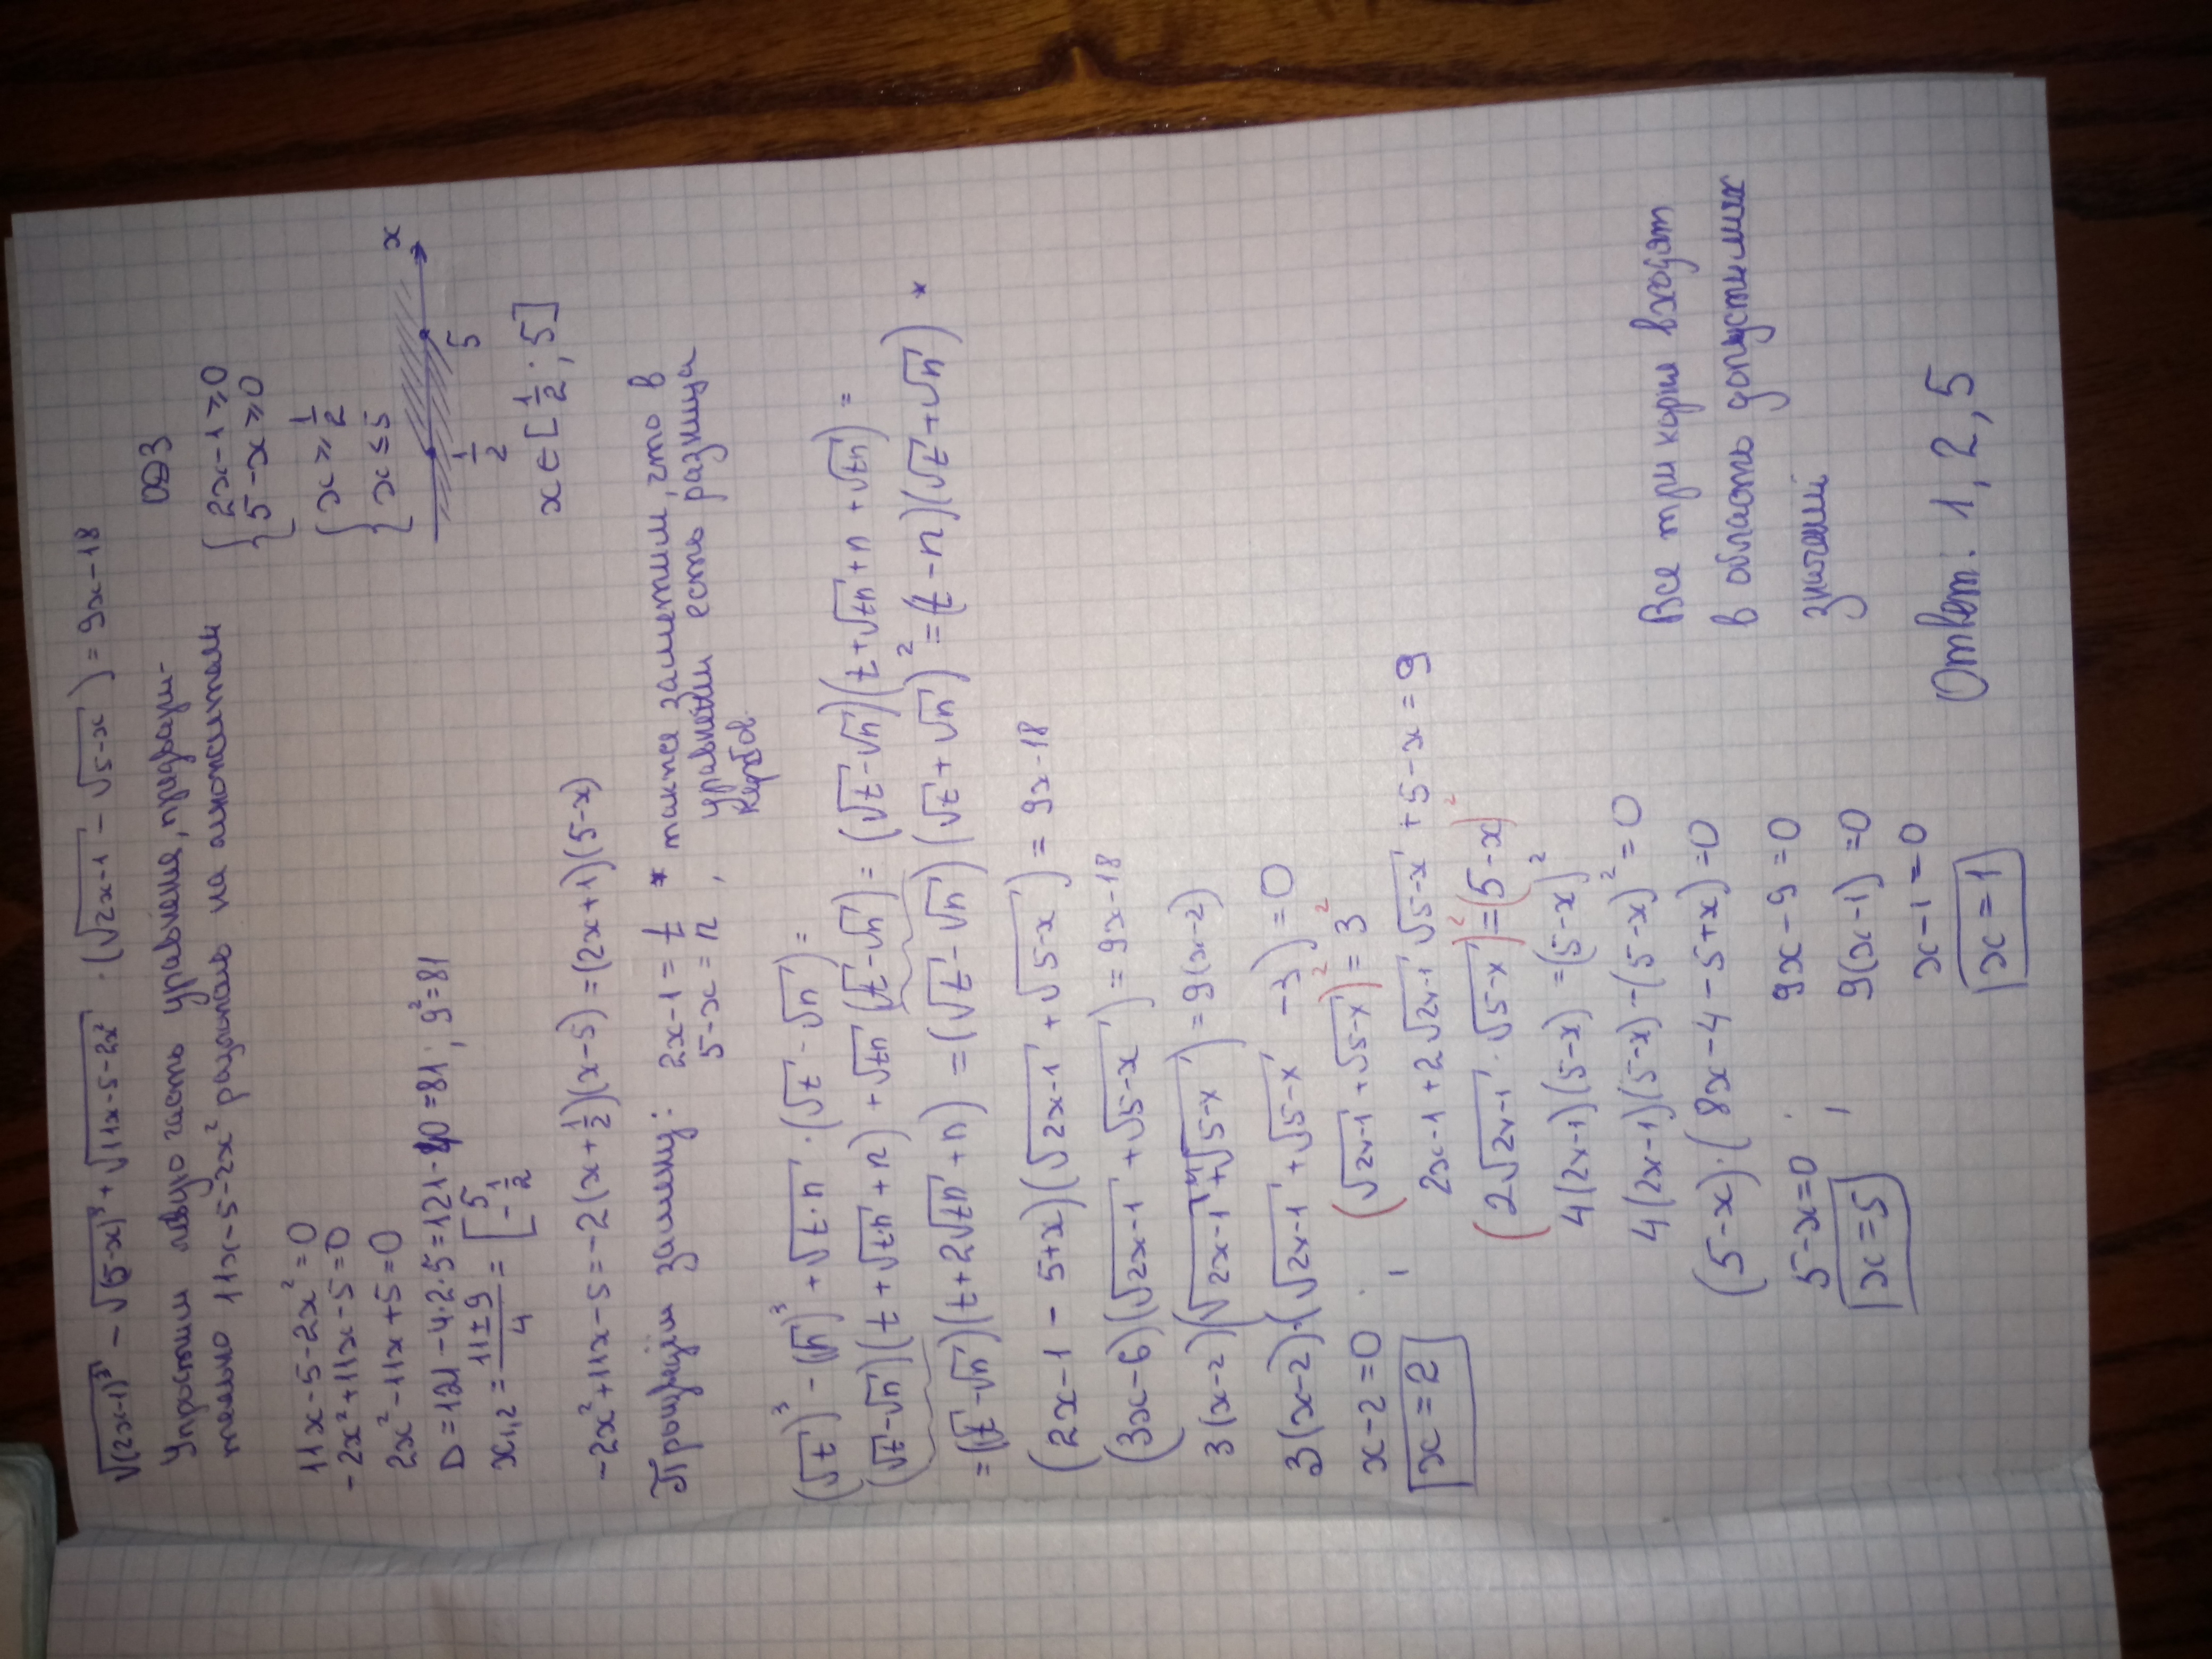 √(2x-1)³ - √(5-x)³ + √11x-5-2x² · (√2x-1 - √5-x) = 9x-18
Упростим левую часть уравнения, предвари-
тельно 11x-5-2x² разложить на множители
ОДЗ
{2x-1≥0
5-x≥0
{x≥1/2
x≤5
x
1/2 5
x∈[1/2; 5]
11x-5-2x²=0
-2x²+11x-5=0
2x²-11x+5=0
D=121-4·2·5=121-40=81; 9²=81
x1,2 = 11±9/4 = [5 -1/2
-2x²+11x-5=-2(x+1/2)(x-5)=(2x+1)(5-x)
Проведём замену: 2x-1=t * также заметим, что в
5-x=n, уравнении есть разница
кубов.
(√t)³-(√n)³+√t·n·(√t-√n)=
(√t-√n)(t+√tn+n)+√tn(√t-√n)=(√t-√n)(t+√tn+n+√tn)=
=(√t-√n)(t+2√tn+n)=(√t-√n)(√t+√n)²=(t-n)(√t+√n) *
(2x-1-5+x)(√2x-1+√5-x)=9x-18
(3x-6)(√2x-1+√5-x)=9x-18
3(x-2)(√2x-1+√5-x)=9(x-2)
3(x-2)·(√2x-1+√5-x-3)=0
x-2=0; (√2x-1+√5-x)²=3²
x=2
2x-1+2√2x-1√5-x+5-x=9
(2√2x-1·√5-x)²=(5-x)²
4(2x-1)(5-x)=(5-x)²
4(2x-1)(5-x)-(5-x)²=0
(5-x)·(8x-4-5+x)=0
5-x=0; 9x-9=0
x=5
9(x-1)=0
x-1=0
x=1
Все три корня входят
в область допустимых
значений
Ответ: 1, 2, 5